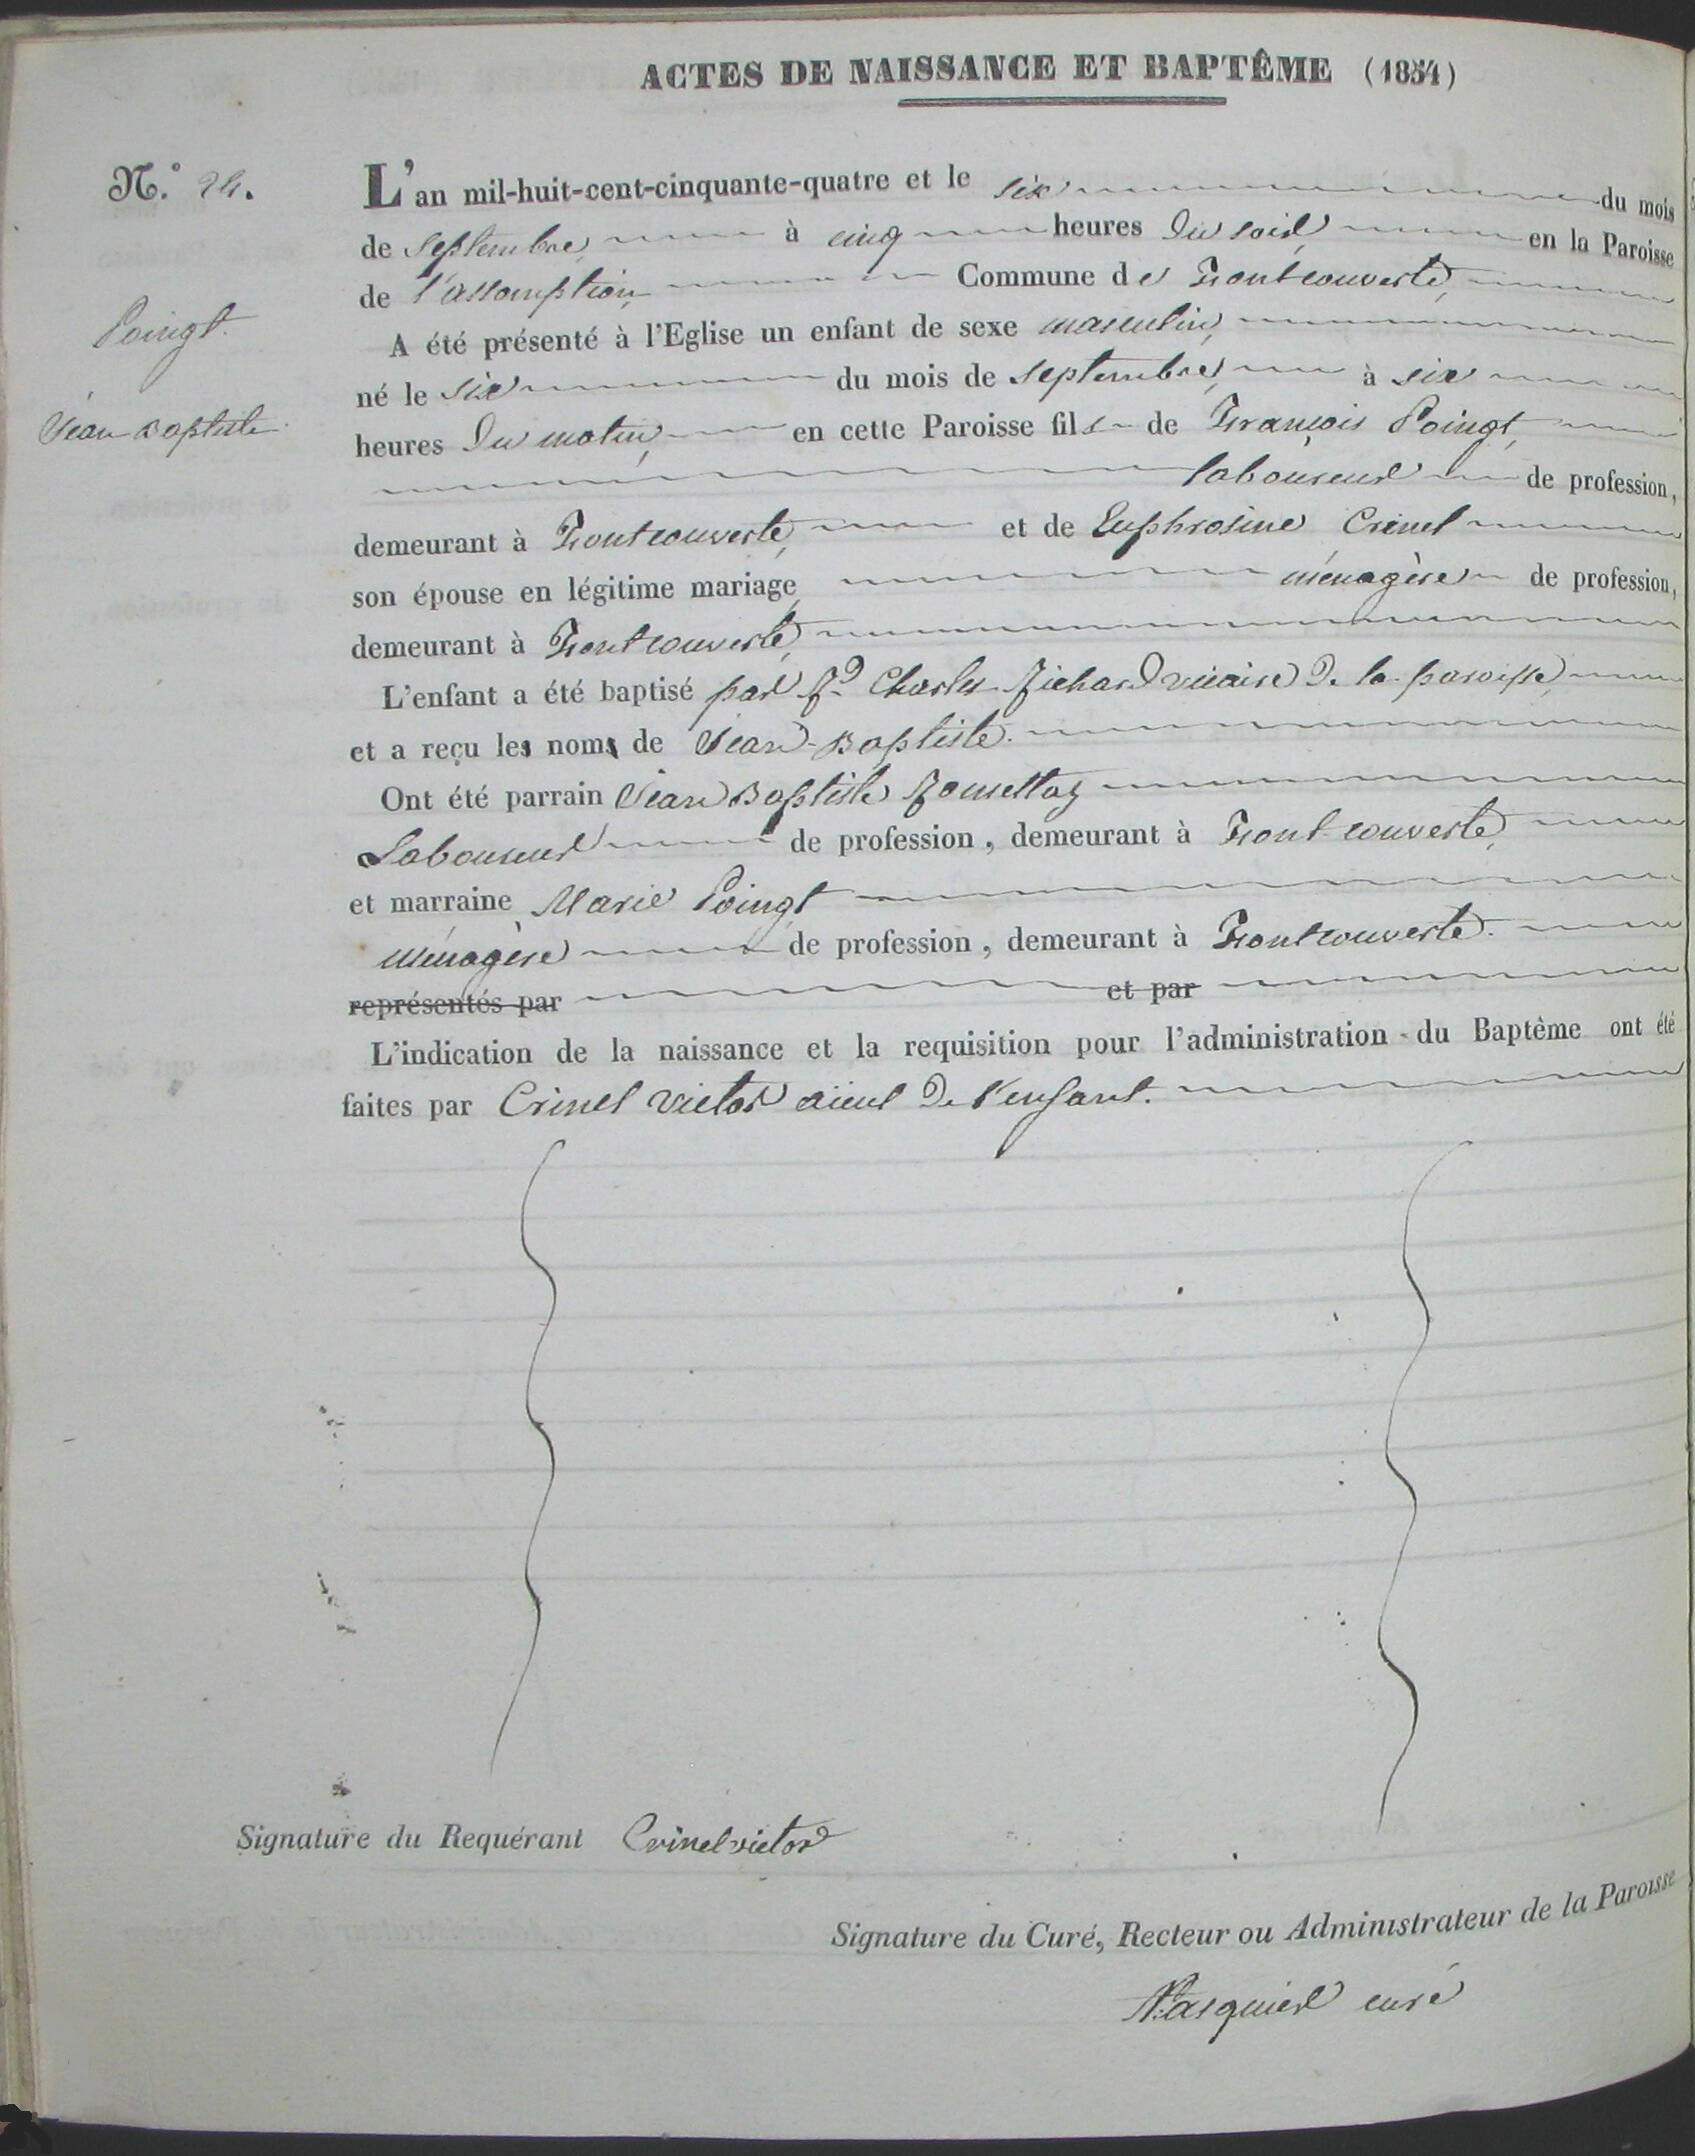 ACTES DE NAISSANCE ET BAPTÊME (1854)
N.° 24.
L'an mil-huit-cent-cinquante-quatre et le six du mois
de septembre, à cinq heures du soir, en la Paroisse
de l'assomption, Commune de Pontcouverte,
Poingt
A été présenté à l'Eglise un enfant de sexe masculin,
né le six du mois de septembre, à six
Jean Baptiste
heures du matin, en cette Paroisse fils de François Poingt,
laboureur de profession,
demeurant à Fontcouverte, et de Euphrosine Crinel
son épouse en légitime mariage ménagère de profession,
demeurant à Fontcouverte,
L'enfant a été baptisé par Rd Charles Richard vicaire de la paroisse,
et a reçu les noms de Jean-Baptiste.
Ont été parrain Jean Baptiste
Laboureur de profession, demeurant à Fontcouverte,
et marraine Marie Poingt
ménagère de profession, demeurant à Fontcouverte.
représentés par et par
L'indication de la naissance et la requisition pour l'administration du Baptême ont été
faites par Crinel victor aïeul de l'enfant.
Signature du Requérant Crinel victor
Signature du Curé, Recteur ou Administrateur de la Paroisse
curé